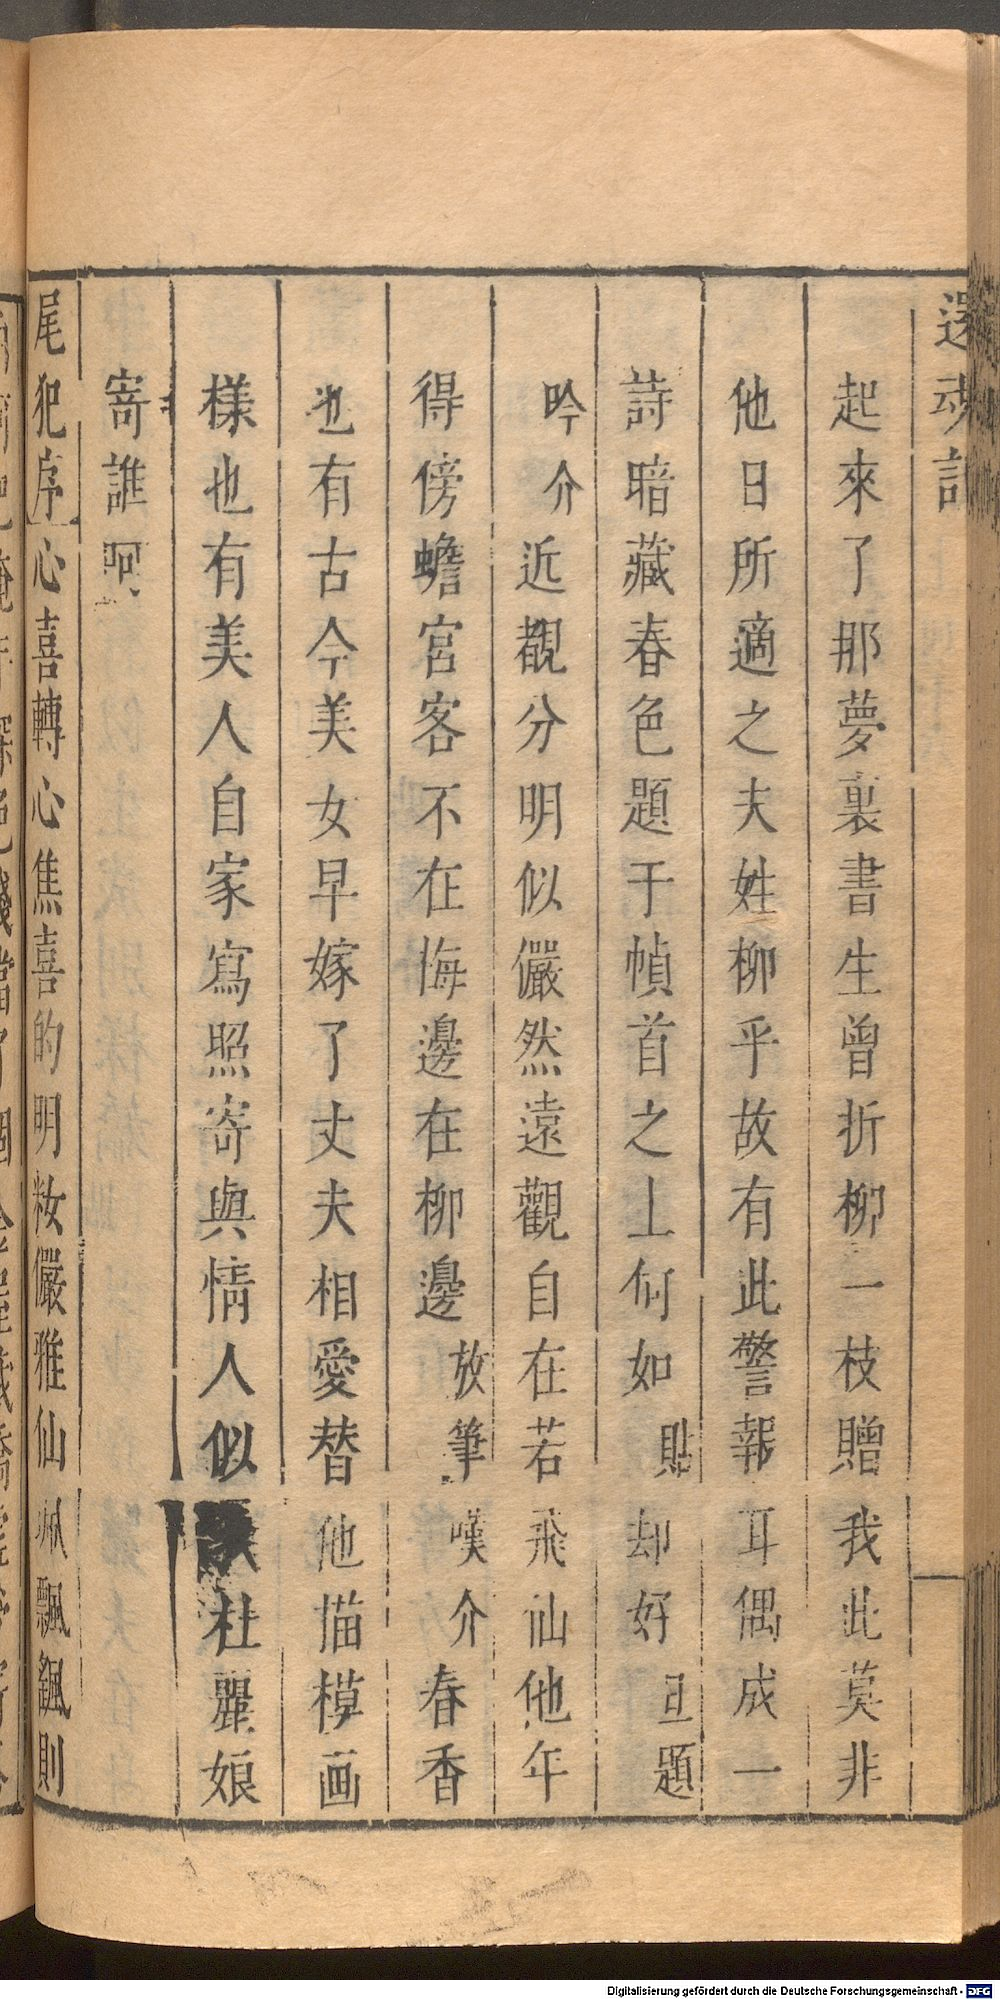 還魂記
起來了那夢裏書生曾折柳一枝贈我此莫非
他日所適之夫姓柳乎故有此警報耳偶成一
詩暗藏春色題于幀首之上何如貼却好旦題
吟介近觀分明似儼然遠觀自在若飛仙他年
得傍蟾宮客不在梅邊在柳邊放筆嘆介春香
也有古今美女早嫁了丈夫相愛替他描模画
樣也有美人自家寫照寄與情人似杜麗娘
寄誰呵
尾犯序心喜轉心焦喜的明妝儼雅仙珮飄颻則
Digitalisierung gefördert durch die Deutsche Forschungsgemeinschaft - DFG